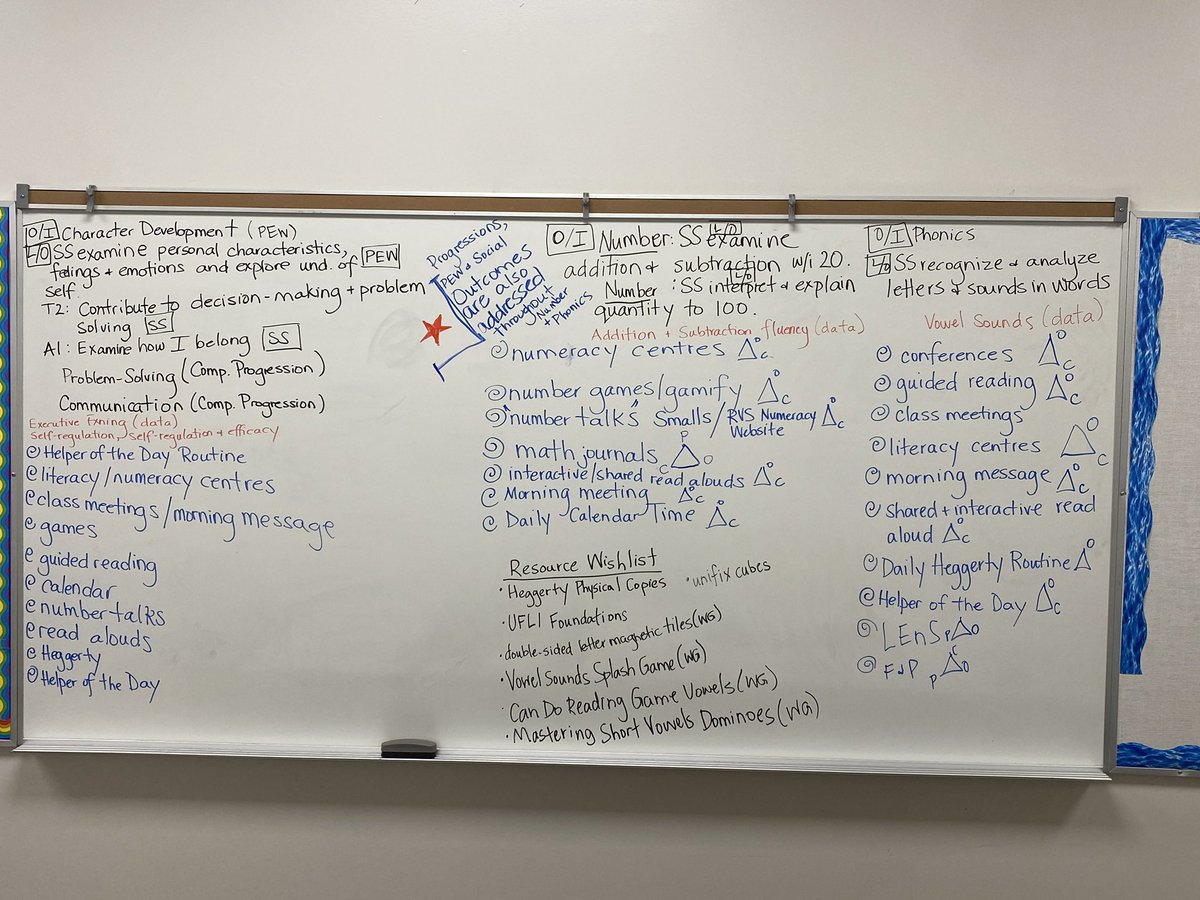 O/I Character Development (PEW)
L/O SS examine personal characteristics, PEW
feelings + emotions and explore und. of
self.
T2: Contribute to decision-making + problem
solving SS
A1: Examine how I belong SS
Problem-Solving (Comp. Progression)
Communication (Comp. Progression)
Executive Fxning (data)
Self-regulation, Self-regulation + efficacy
Helper of the Day Routine
literacy/numeracy centres
class meetings/morning message
games
guided reading
calendar
number talks
read alouds
Heggerty
Helper of the Day
Progressions,
PEW + Social
Outcomes
are also
addressed
throughout
Number
+ Phonics
O/I Number: SS examine L/O
addition + subtraction w/i 20.
Number: SS interpret + explain L/O
quantity to 100.
Addition + Subtraction fluency (data)
numeracy centres Δ O C
number games/gamify Δ O C
"number talks" Smalls/RVS Numeracy Δ O C
Website
math journals P Δ C O
interactive/shared read alouds Δ O C
Morning meeting Δ O C
Daily Calendar Time Δ O C
Resource Wishlist
· Heggerty Physical Copies · unifix cubes
· UFLI Foundations
· double-sided letter magnetic tiles (WG)
· Vowel Sounds Splash Game (WG)
· Can Do Reading Game Vowels (WG)
· Mastering Short Vowels Dominoes (WG)
O/I Phonics
L/O SS recognize + analyze
letters + sounds in words
Vowel Sounds (data)
conferences Δ O C
guided reading Δ O C
class meetings
literacy centres Δ O C
morning message Δ O C
shared + interactive read
aloud Δ O C
Daily Heggerty Routine Δ O
Helper of the Day Δ O C
LEnS P Δ O
F+P P Δ C O